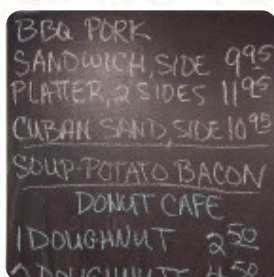 BBQ PORK
SANDWICH, SIDE 9⁹⁵
PLATTER, 2 SIDES 11⁹⁵
CUBAN SAND, SIDE 10⁹⁵
SOUP-POTATO BACON
DONUT CAFE
1 DOUGHNUT 2⁵⁰
2 DOUGHNUTS 4⁵⁰